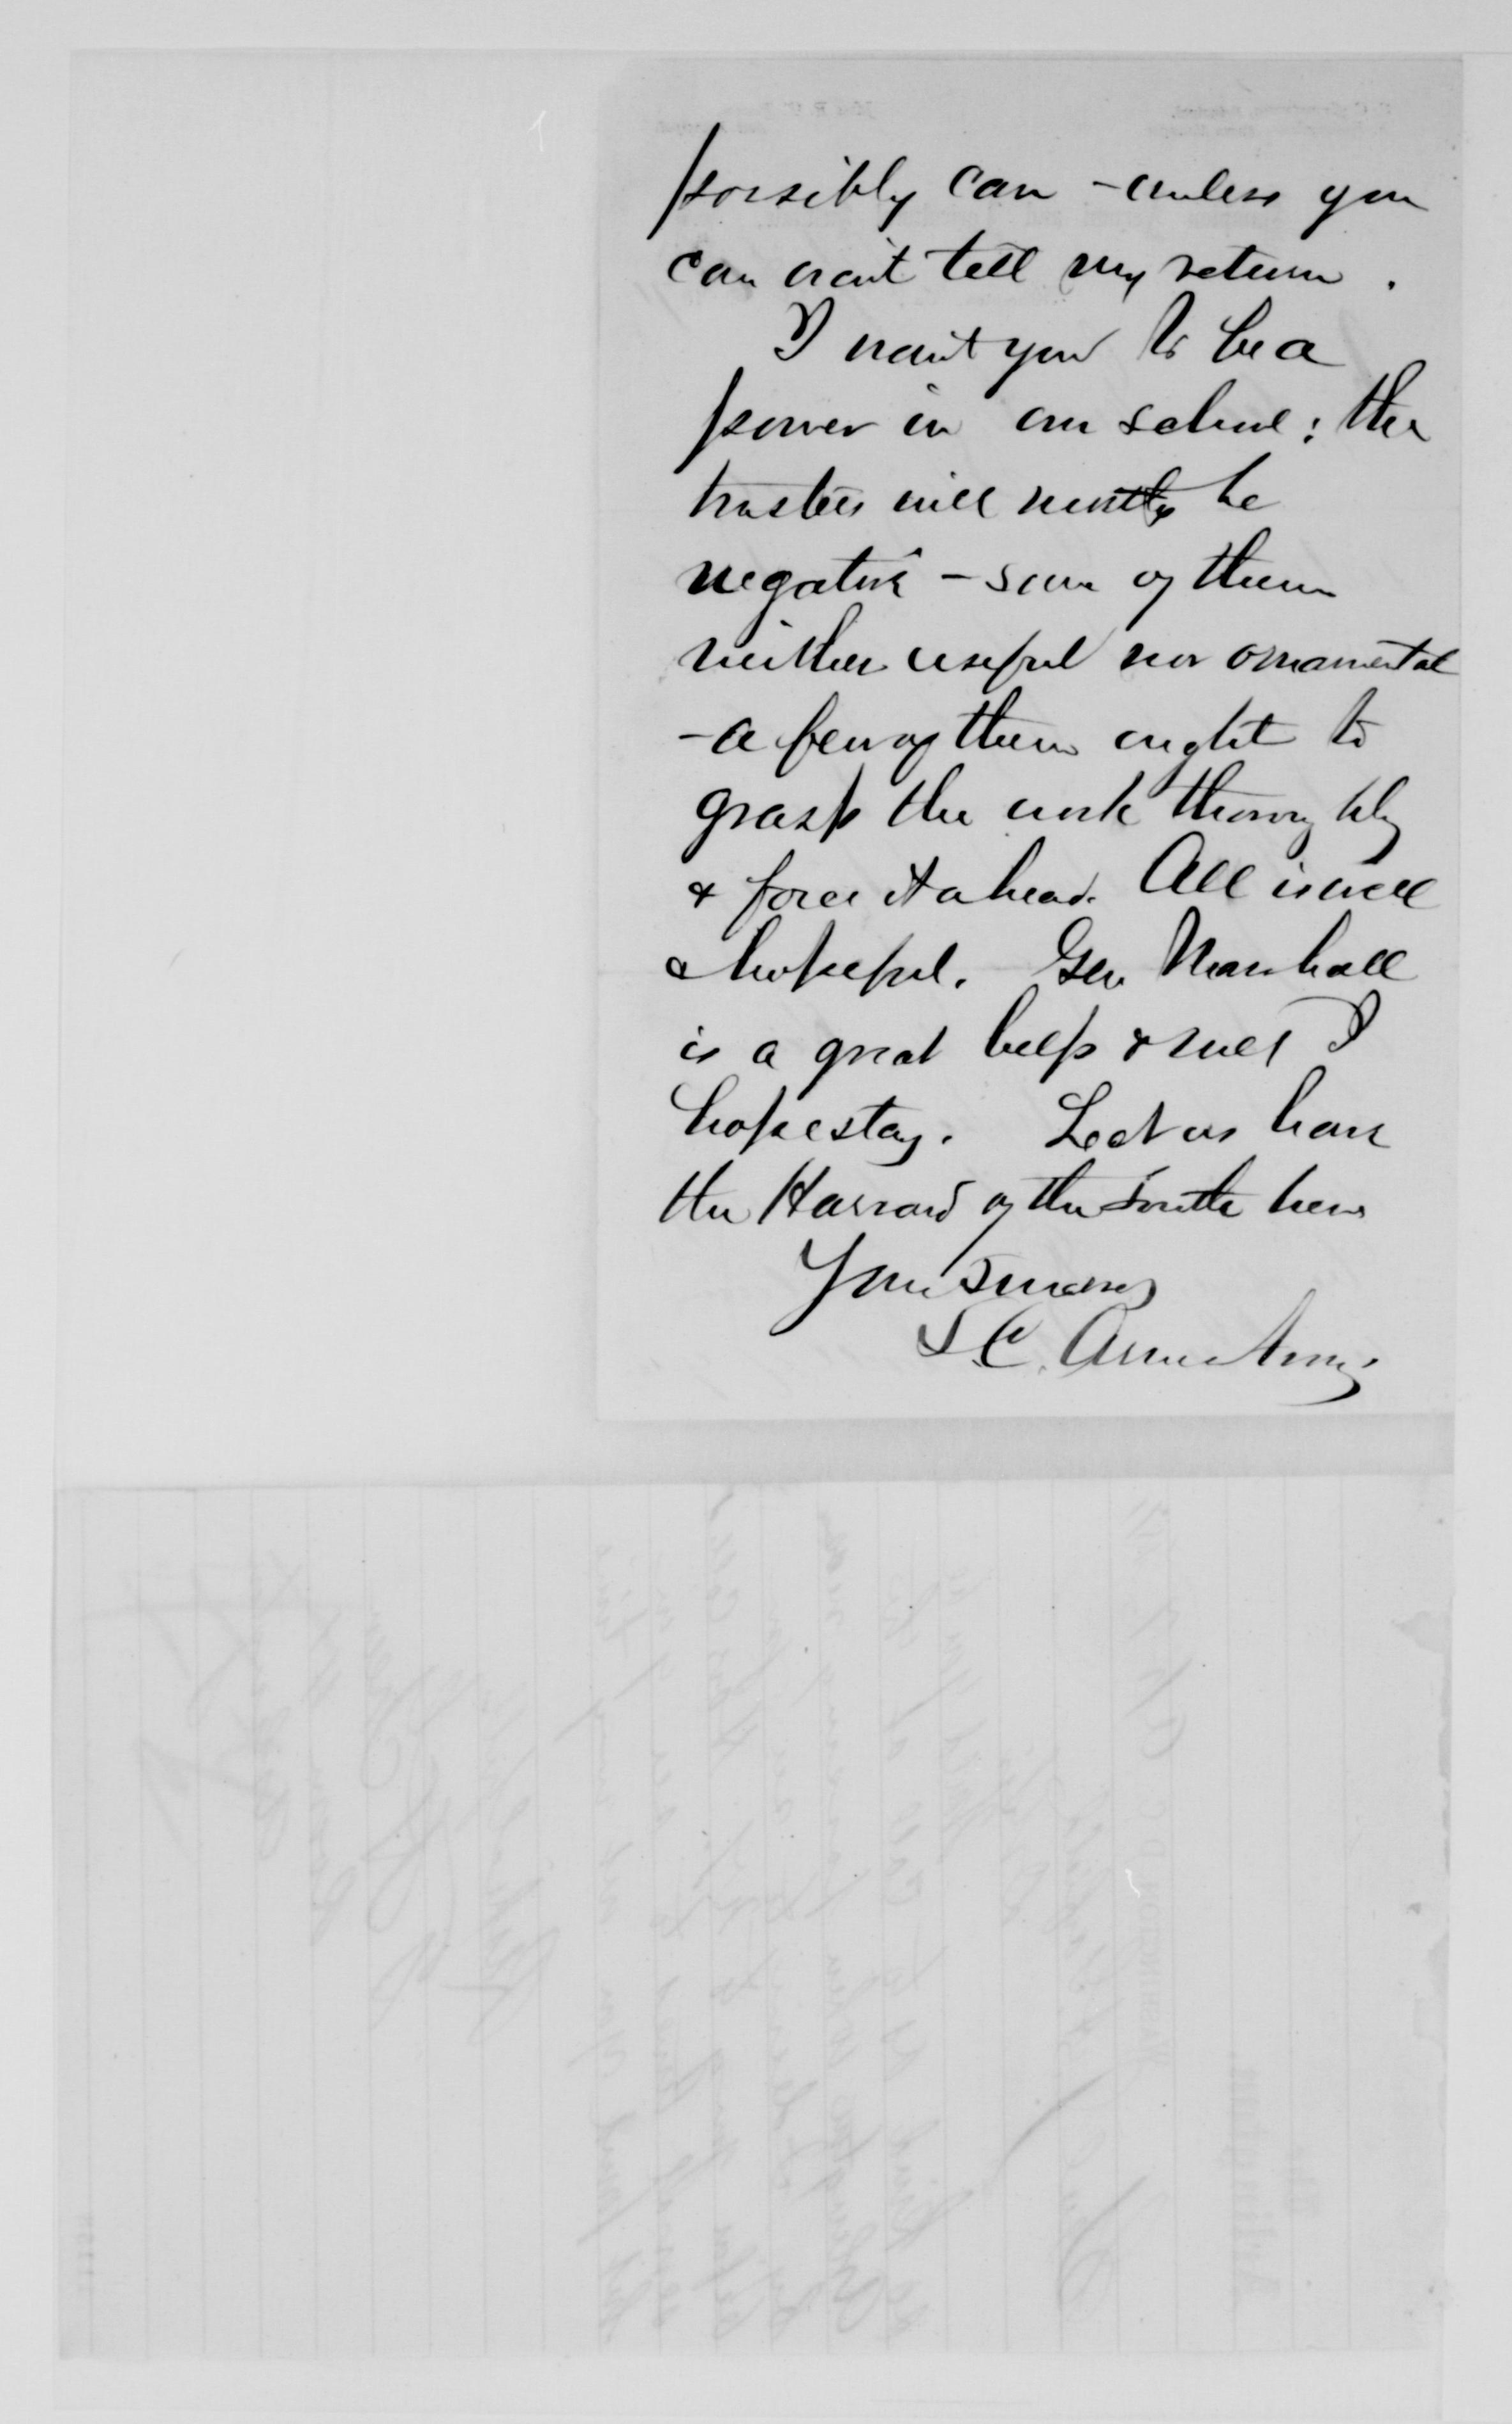 possibly can - unless you
can wait till my return.
I want you to be a
power in our school: the
trustees will mostly be
negative - some of them
neither useful nor ornamental
- a few of them ought to
grasp the work thoroughly
& force it ahead. All is well
& hopeful. Gen Marshall
is a great help & will I
hope stay. Let us have
the Harvard of the South here
Yours Sincerely
S.C. Armstrong